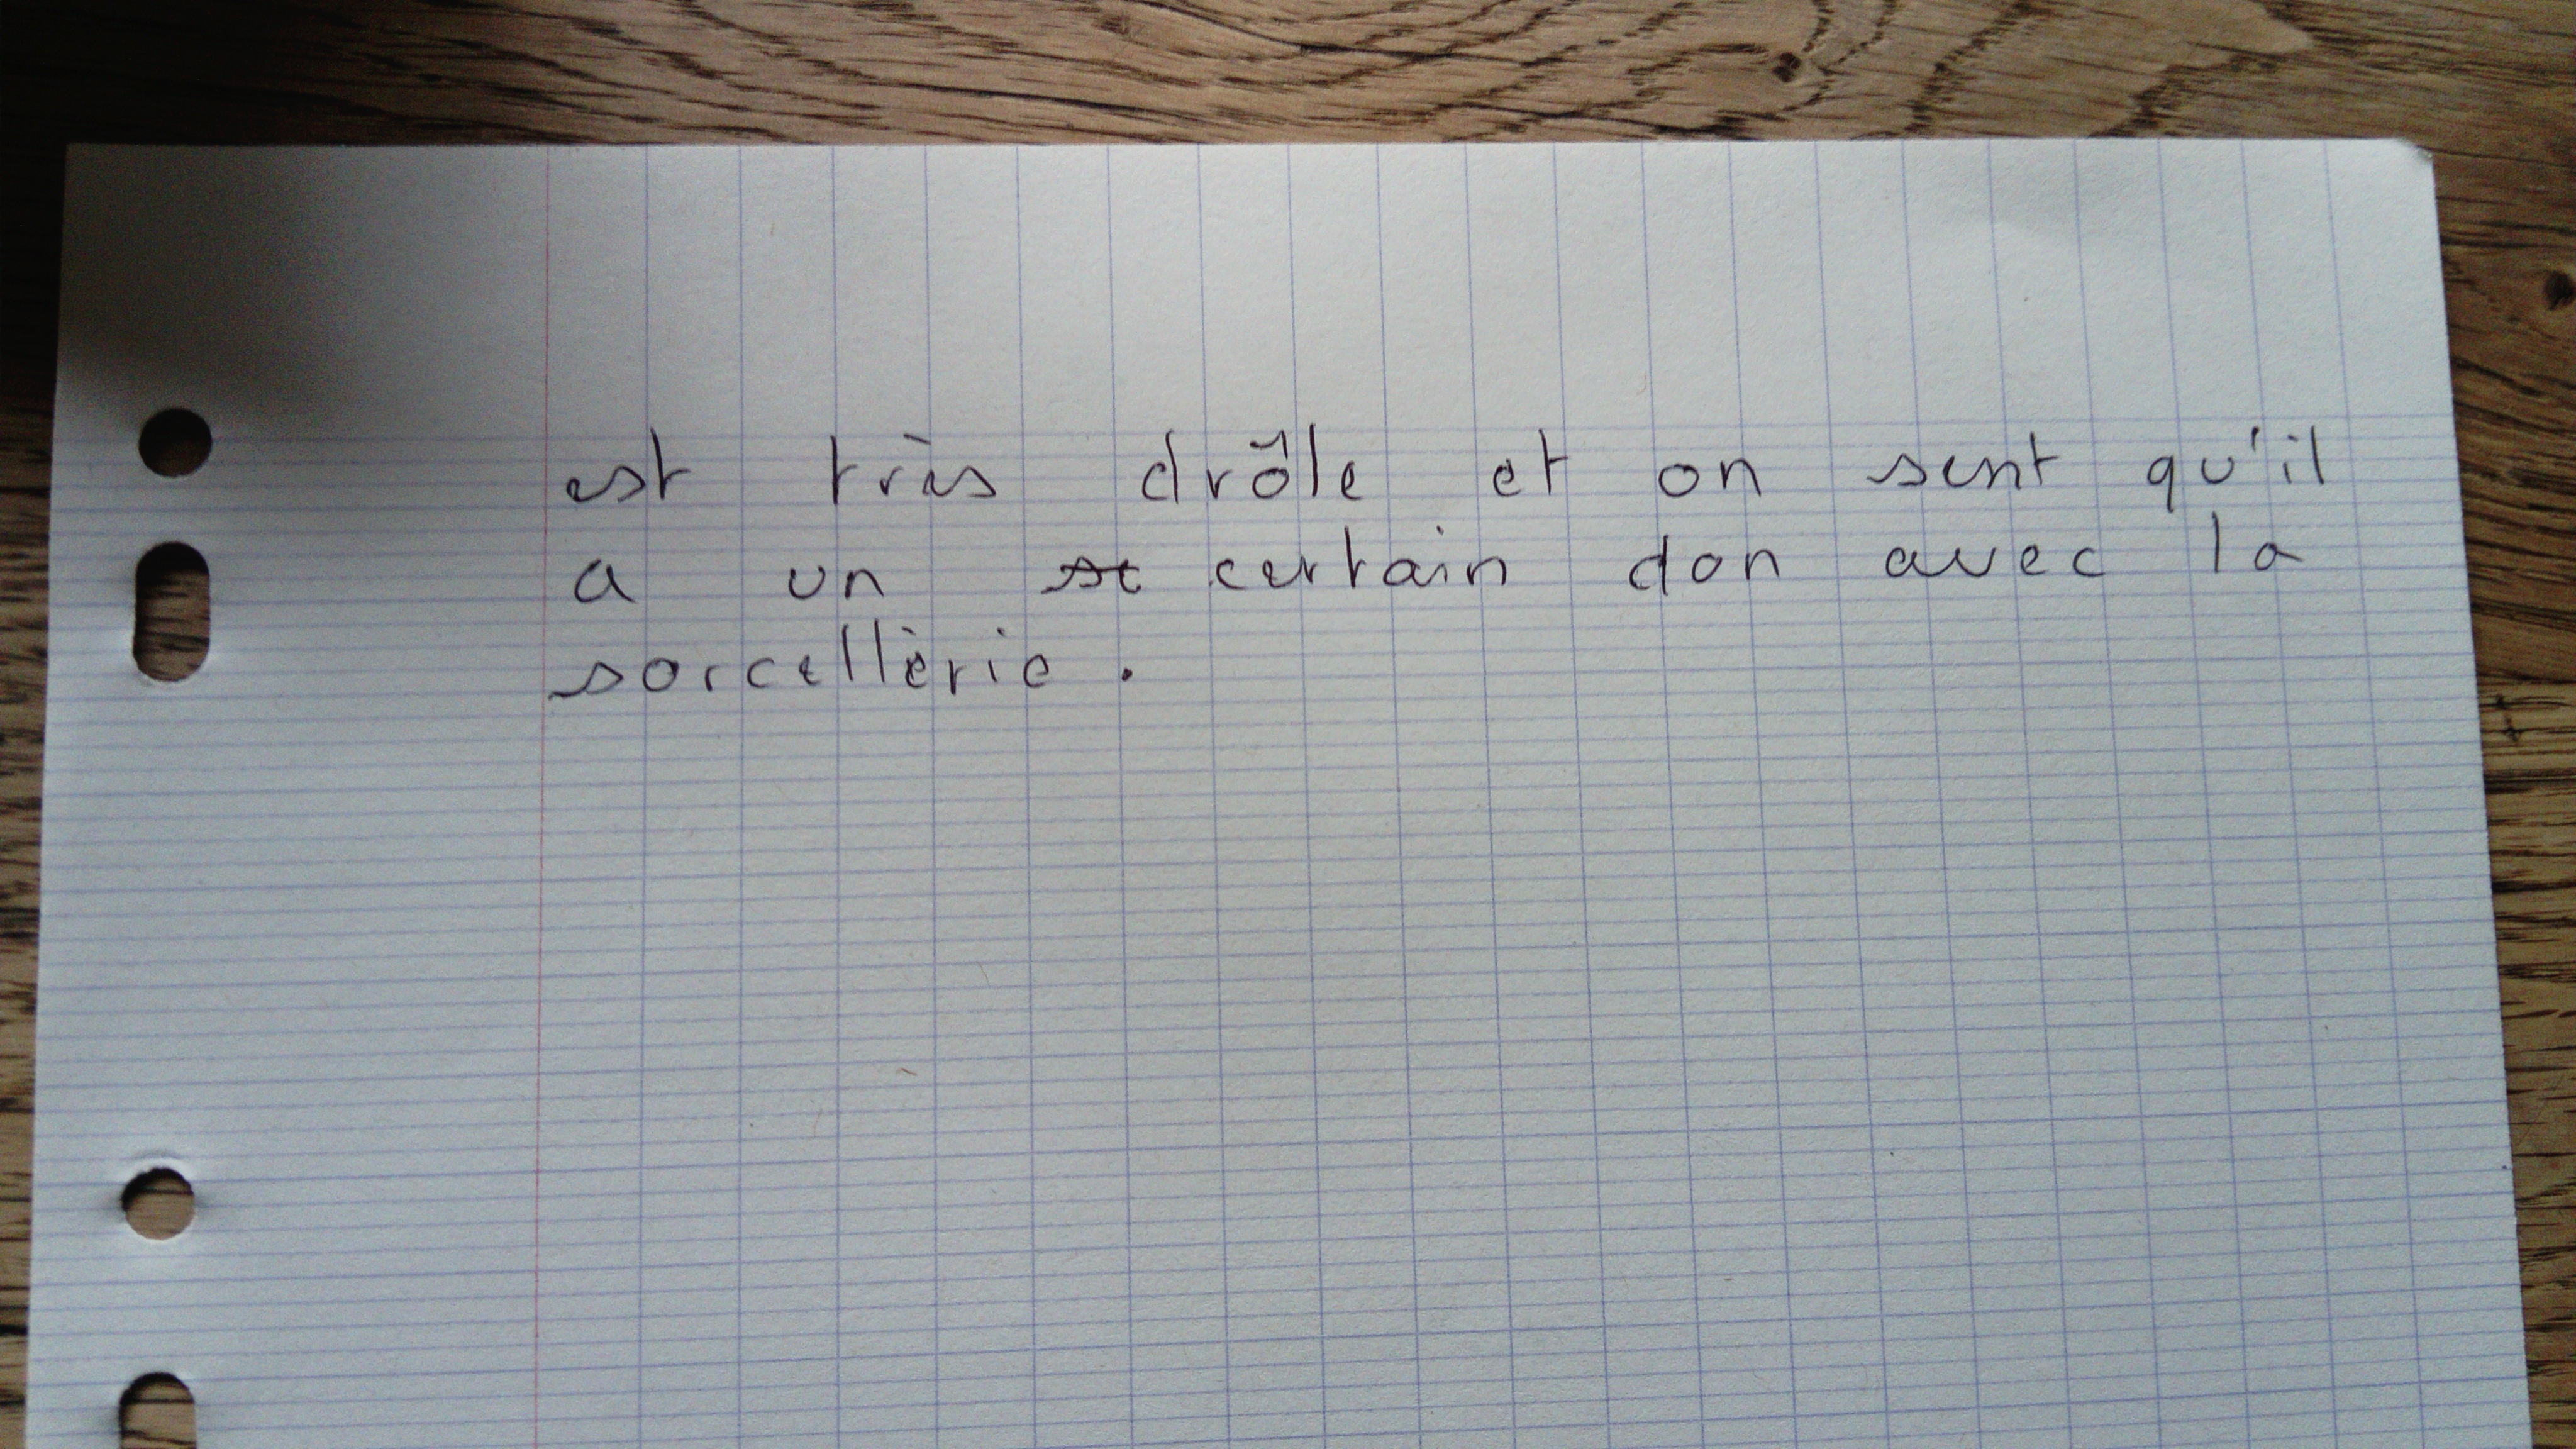 est très drôle et on sent qu'il
a un se certain don avec la
sorcellèrie.